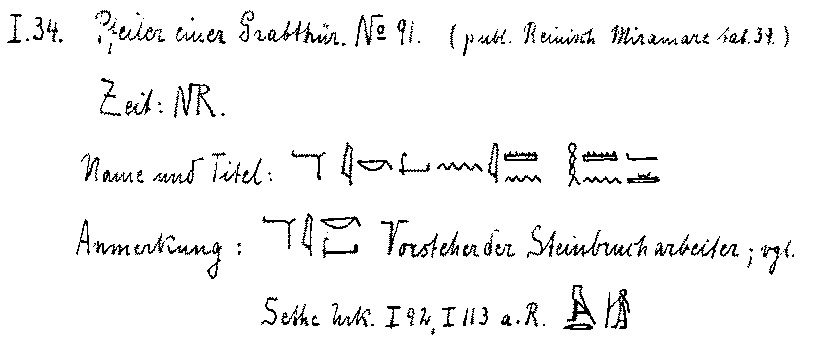 I.34. Pfeiler einer Grabthür. No 91. (publ. Reinisch Miramare taf. 37.)
Zeit: NR.
Name und Titel:
Anmerkung: Vorsteher der Steinbrucharbeiter; vgl.
Sethe Urk. I 92, I 113 a.R.